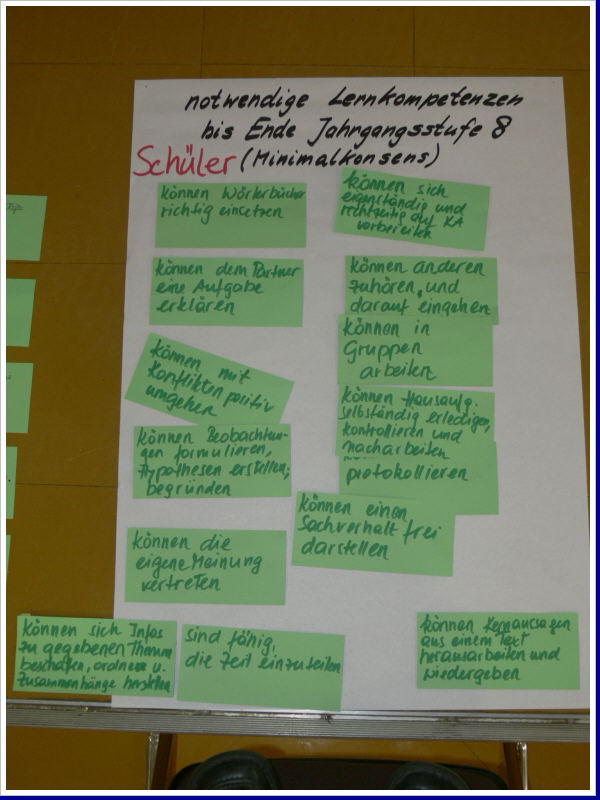 notwendige Lernkompetenzen
bis Ende Jahrgangsstufe 8
Schüler (Minimalkonsens)
können Wörterbücher
richtig einsetzen
können sich
eigenständig und
rechtzeitig auf KA
vorbereiten
können dem Partner
eine Aufgabe
erklären
können anderen
zuhören, und
darauf eingehen
können in
Gruppen
arbeiten
können mit
Konflikten positiv
umgehen
können Hausaufg.
selbständig erledigen,
kontrollieren und
nacharbeiten
können Beobachtun-
gen formulieren,
Hypothesen erstellen,
begründen
protokollieren
können einen
Sachverhalt frei
darstellen
können die
eigene Meinung
vertreten
können sich Infos
zu gegebenen Themen
beschaffen, ordnen u.
Zusammenhänge herstellen
sind fähig,
die Zeit einzuteilen
können Kernaussagen
aus einem Text
herausarbeiten und
wiedergeben